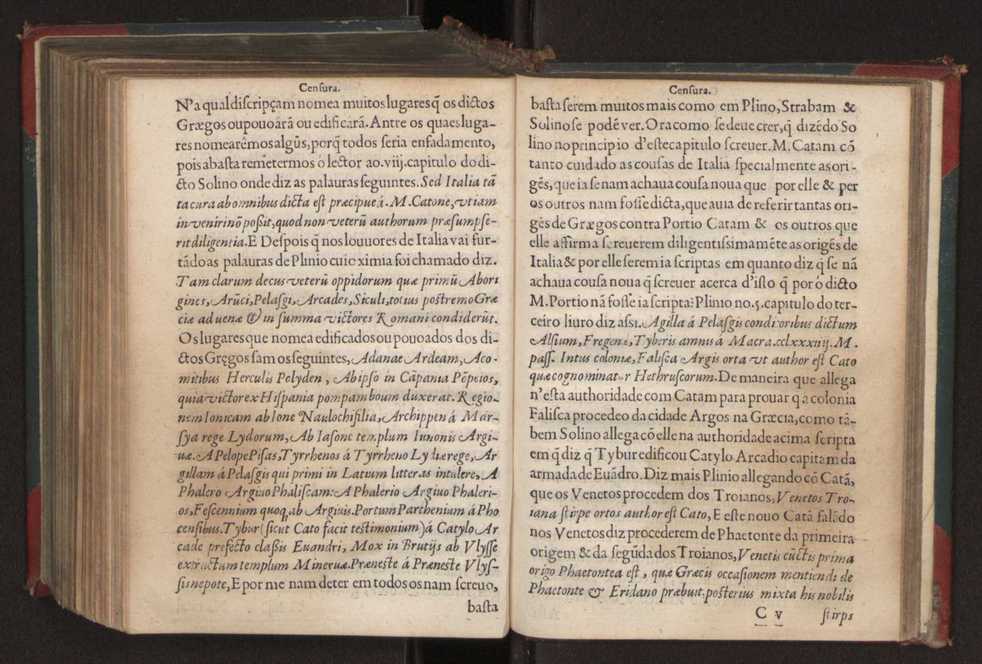 Censura.
Na qual discripçam nomea muitos lugares q̃ os dictos
Grægos ou pouoarã ou edificarã. Antre os quaes luga-
res nomearêmos algũs, porq̃ todos seria enfadamento,
pois abasta remetermos o lector ao .viij. capitulo do di-
cto Solino onde diz as palauras seguintes. Sed Italia tã
ta cura ab omnibus dicta est præcipue á .M. Catone, vt iam
inveniri nõ poßit, quod non veterũ authorum præsumpse-
rit diligentia. E Despois q̃ nos louuores de Italia vai fur-
tãdo as palauras de Plinio cuio ximia foi chamado diz.
Tam clarum decus veterũ oppidorum quæ primũ Abori
gines, Arũci, Pelasgi, Arcades, Siculi, totius postremo Græ
ciæ aduenæ & in summa victores Romani condiderũt.
Os lugares que nomea edificados ou pouoados dos di-
ctos Gręgos sam os seguintes, A Danae Ardeam, A co-
mitibus Herculis Pelyden, Ab ipso in Cãpania Põpeios,
quia victor ex Hispania pompam boum duxerat. Regio-
nem Ionicam ab Ione Naulochi filia, Archippen á Mar-
sya rege Lydorum, Ab Iasone templum Iunonis Argi-
uæ. A Pelope Pisas, Tyrrhenos á Tyrrheno Lydiæ rege, Ar
gillam á Pelasgis qui primi in Latium litteras intulere, A
Phalero Argiuo Phaliscam: A Phalerio Argiuo Phaleri-
os, Fescennium quoq, ab Argiuis. Portum Parthenium á Pho
censibus. Tybur (sicut Cato facit testimonium) á Catylo Ar
cade præfecto claßis Euandri, Mox in Brutijs ab Vlysse
extructum templum Mineruæ. Præneste á Præneste Vlys-
sis nepote, E por me nam deter em todos os nam screuo,
basta
Censura.
basta serem muitos mais como em Plino, Strabam &
Solino se podẽ ver. Ora como se deue crer, q̃ dizẽdo So
lino no principio d'este capitulo screuer. M. Catam cõ
tanto cuidado as cousas de Italia specialmente as ori-
gẽs, que ia se nam achaua cousa noua que por elle & per
os outros nam fosse dicta, que auia de referir tantas ori-
gẽs de Grægos contra Portio Catam & os outros que
elle affirma screuerem diligentissimamẽte as origẽs de
Italia & por elle serem ia scriptas em quanto diz q̃ se nã
achaua cousa noua q̃ screuer acerca d'isso q̃ por o dicto
M. Portio nã fosse ia scripta: Plinio no .5. capitulo do ter-
ceiro liuro diz assi. Agilla á Pelasgis conditoribus dictum
Alsium, Fregenæ, Tyberis amnis á Macra .cclxxxiiij. M.
pass. Intus coloniæ, Falisca Argis orta vt author est Cato
quæ cognominatur Hethruscorum. De maneira que allega
n'esta authoridade com Catam para prouar q̃ a colonia
Falisca procedeo da cidade Argos na Græcia, como tã-
bem Solino allega cõ elle na authoridade acima scripta
em q̃ diz q̃ Tybur edificou Catylo Arcadio capitam da
armada de Euãdro. Diz mais Plinio allegando cõ Catã,
que os Venetos procedem dos Troianos, Venetos Tro-
iana stirpe ortos author est Cato, E este nouo Catã falãdo
nos Venetos diz procederem de Phaetonte da primeira
origem & da segũda dos Troianos, Venetis cũctis prima
origo Phaetontea est, quæ Græcis occasionem mentiendi de
Phaetonte & Eridano præbuit, posterius mixta his nobilis
C v
stirps